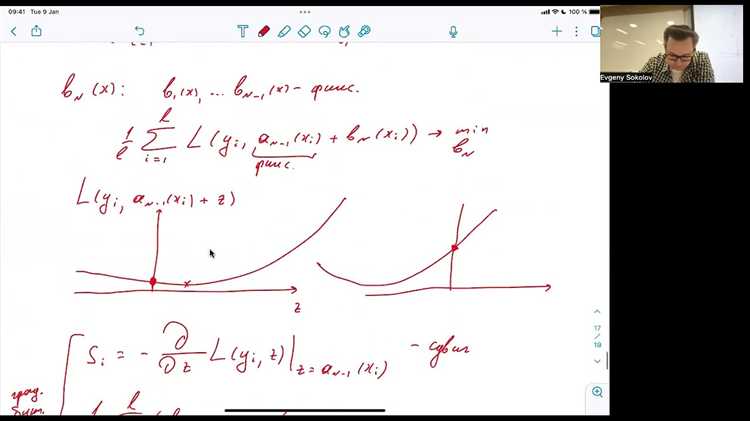 09:41 Tue 9 Jan
100 %
Evgeny Sokolov
i=1
b_N(x): b_1(x), ... b_{N-1}(x) - фикс.
1/ℓ ∑_{i=1}^{ℓ} L(y_i, a_{N-1}(x_i) + b_N(x_i)) → min_{b_N}
фикс.
L(y_i, a_{N-1}(x_i) + z)
z
S_i = - ∂/∂z L(y_i, z)|_{z = a_{N-1}(x_i)} - сдвиг
17
/
19
град.